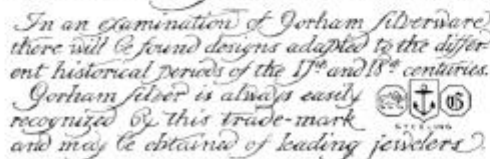 In an examination of Gorham silverware
there will be found designs adapted to the differ-
ent historical periods of the 17th and 18th centuries.
Gorham silver is always easily
recognized by this trade-mark
and may be obtained of leading jewelers
G
STERLING